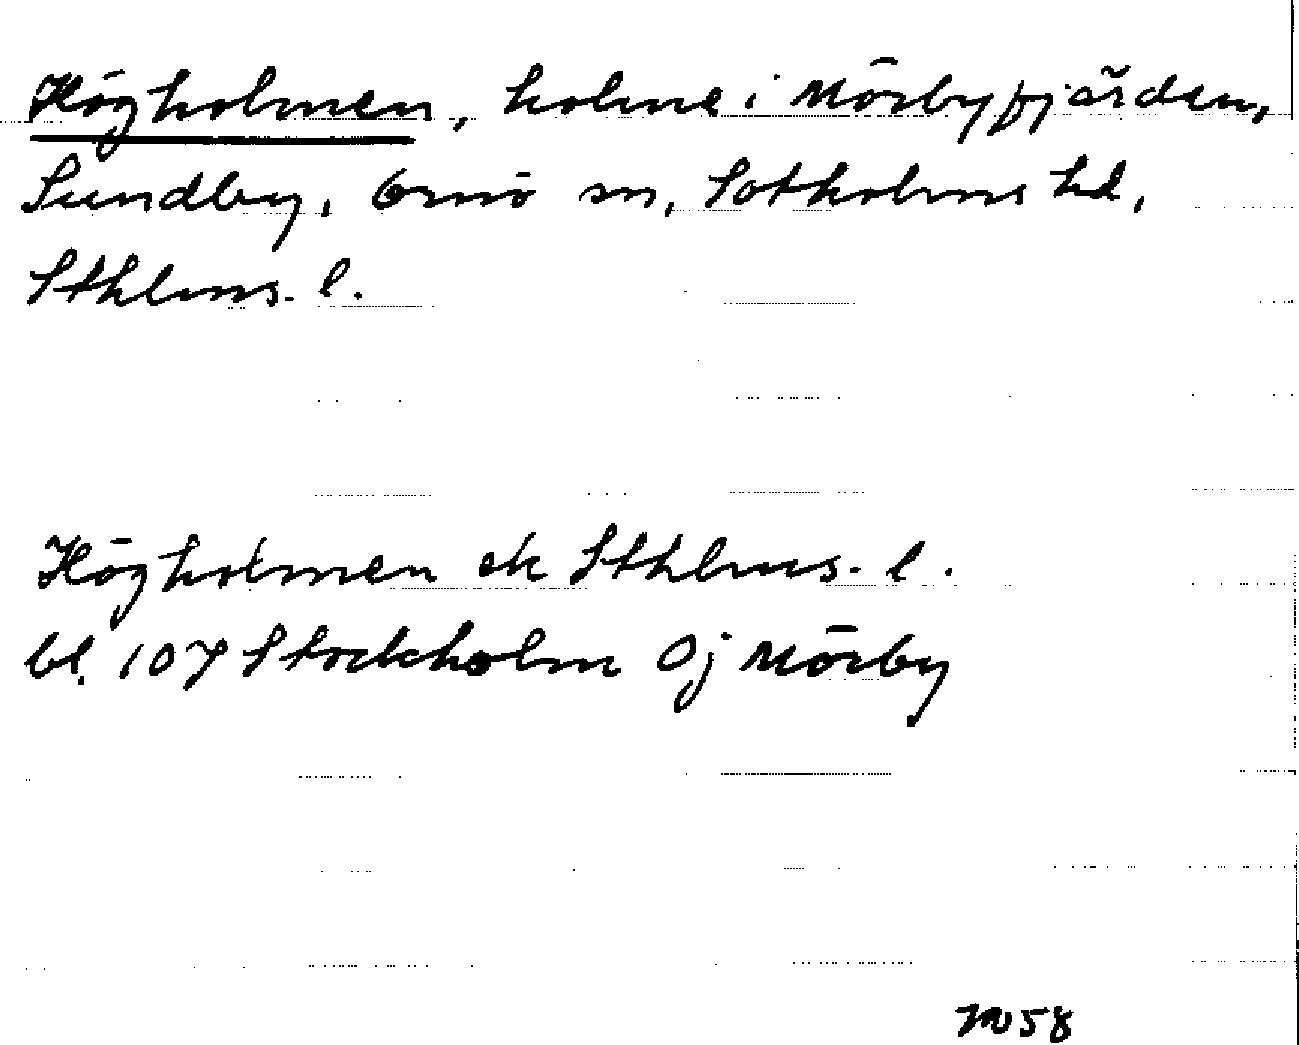 Högholmen, holme i Mörbyfjärden,
Sundby, Ornö sn, Sotholms hd,
Sthlms. l.
Högholmen ek Sthlms. l.
bl. 107 Stockholm Oj Mörby
58